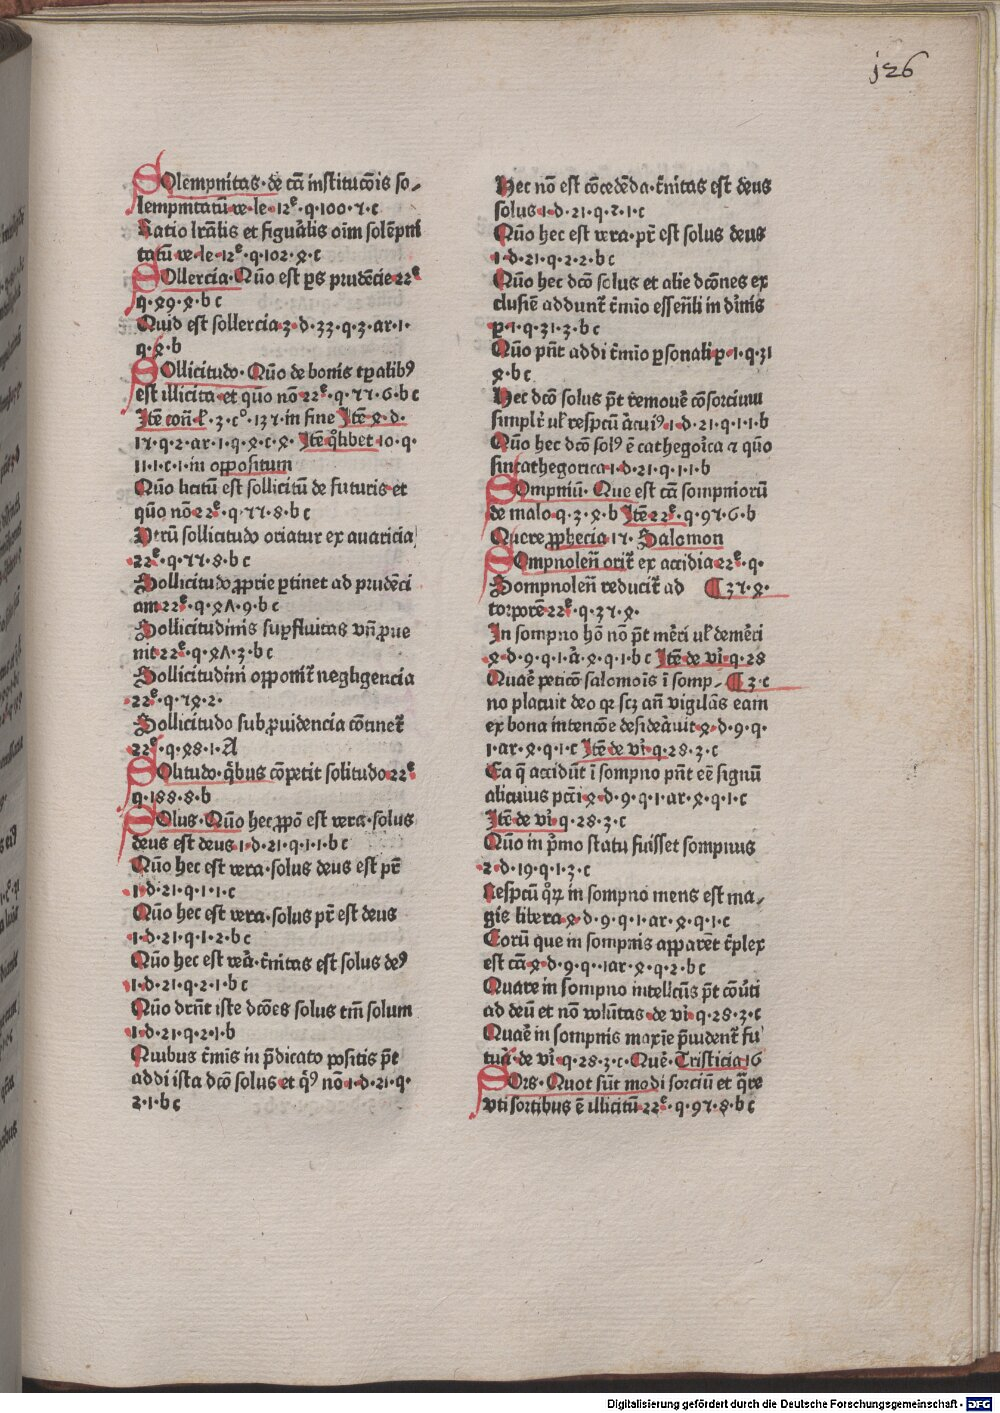 j26
SOlempnitas·de cā institucōis so-
lempnitatū ve·le·12ᵉ·q·100·7·c
Ratio lrālis et figuālis oīm solēpni
tatū ve·le·12ᵉ·q·102·ꝝ·c
SOllercia·Quō est ps prudēcie 22ᵉ
q·ꝝ9·ꝝ·b c
Quid est sollercia 3·d·33·q·3·ar·1·
q·ꝝ·b
SOllicitudo·Quō de bonis tꝑalibꝰ
est illicita et quō nō 22ᵉ·q·77·6·b c
Itē con̄·l̄·3·cº·137·in fine Itē ꝝ·d·
17·q·2·ar·1·q·ꝝ·c·ꝝ· Itē qͦlibet 10·q·
11·1·c·1·in oppositum
Quō licitū est sollicitū de futuris et
quō nō 22ᵉ·q·77·8·b c
Vtrū sollicitudo oriatur ex auaricia
22ᵉ·q·77·8·b c
Sollicitudo ꝓprie ꝑtinet ad prudēci
am 22ᵉ·q·ꝝΛ·9·b c
Sollicitudinis suꝑfluitas vn̄ ꝓue
nit 22ᵉ·q·ꝝΛ·3·b c
Sollicitudini opponit᷑ negligencia
22ᵉ·q·7ꝝ·2·
Sollicitudo sub ꝓuidencia cōtinet᷑
22ᵉ·q·ꝝ8·1·A
SOlitudo·qͥbus cōpetit solitudo 22ᵉ
q·188·8·b
SOlus·Quō hec ꝓpō est vera·solus
deus est deus 1·d·21·q·1·1·b c
Quō hec est vera·solus deus est pr̄
1·d·21·q·1·1·c
Quō hec est vera·solus pr̄ est deus
1·d·21·q·1·2·b c
Quō hec est veā·t᷑nitas est solus deꝰ
1·d·21·q·2·1·b c
Quō drn̄t iste dcōes solus tm̄ solum
1·d·21·q·2·1·b
Quibus t᷑mis in p̄dicato positis p̄t
addi ista dcō solus et qͥꝰ nō 1·d·21·q·
2·1·b c
Hec nō est cōcedēda·t᷑nitas est deus
solus 1·d·21·q·2·1·c
Quō hec est vera·pr̄ est solus deus
1·d·21·q·2·2·b c
Quō hec dcō solus et alie dcōnes ex
clusiē addunt᷑ t᷑mio essen̄li in diͥnis
p·1·q·31·3·b c
Quō pn̄t addi t᷑mio ꝑsonali p·1·q·31
ꝝ·b c
Hec dcō solus p̄t remouē cōsorcium
simplr̄ ul̓ respcū 1·d·21·q·1·1·b
Quō hec dcō solꝰ ē cathegoͥca ⁊ quō
sincathegorica 1·d·21·q·1·1·b
SOmpniū·Que est cā sompniorū
de malo q·3·ꝝ·b Itē 22ᵉ·q·97·6·b
Quere ꝓphecia 17·Salomon
SOmpnolen̄ orit᷑ ex accidia 22ᵉ·q·
Sompnolen̄ reducit᷑ ad ¶ 37·ꝝ·
torporē 22ᵉ·q·37·ꝝ·
In sompno hō nō p̄t mēri ul̓ demēri
ꝝ·d·9·q·1·ā·ꝝ·q·1·b c Itē de vīͥ·q·28
Quaē peticō salomōis ī somp- ¶ 3·c
no placuit deo qꝛ scꝫ an̄ vigilās eam
ex bona intencōe desideāuit ꝝ·d·9·q·
1·ar·ꝝ·q·1·c Itē de vīͥ·q·28·3·c
Ea q̄ accidūt ī sompno pn̄t eē signū
alicuius pcāi ꝝ·d·9·q·1·ar·ꝝ·q·1·c
Itē de vīͥ·q·28·3·c
Quō in pͥmo statu fuisset sompnus
2·d·19·q·1·3·c
Respcū qͦꝝ in sompno mens est ma-
gis libera ꝝ·d·9·q·1·ar·ꝝ·q·1·c
Eorū que in sompnis apparēt t᷑plex
est cā ꝝ·d·9·q··1ar·ꝝ·q·2·b c
Quare in sompno intellcūs p̄t cōuͤti
ad deū et nō volūtas·de vīͥ·q·28·3·c
Quaē in sompnis maxīe p̄uident᷑ fu
tuā·de vīͥ·q·28·3·c·Quē·Tristicia 16
SOrs·Quot sūt modi sorciū et qͣre
vti sortibus ē illicitū 22ᵉ·q·97·8·b c
Digitalisierung gefördert durch die Deutsche Forschungsgemeinschaft - DFG